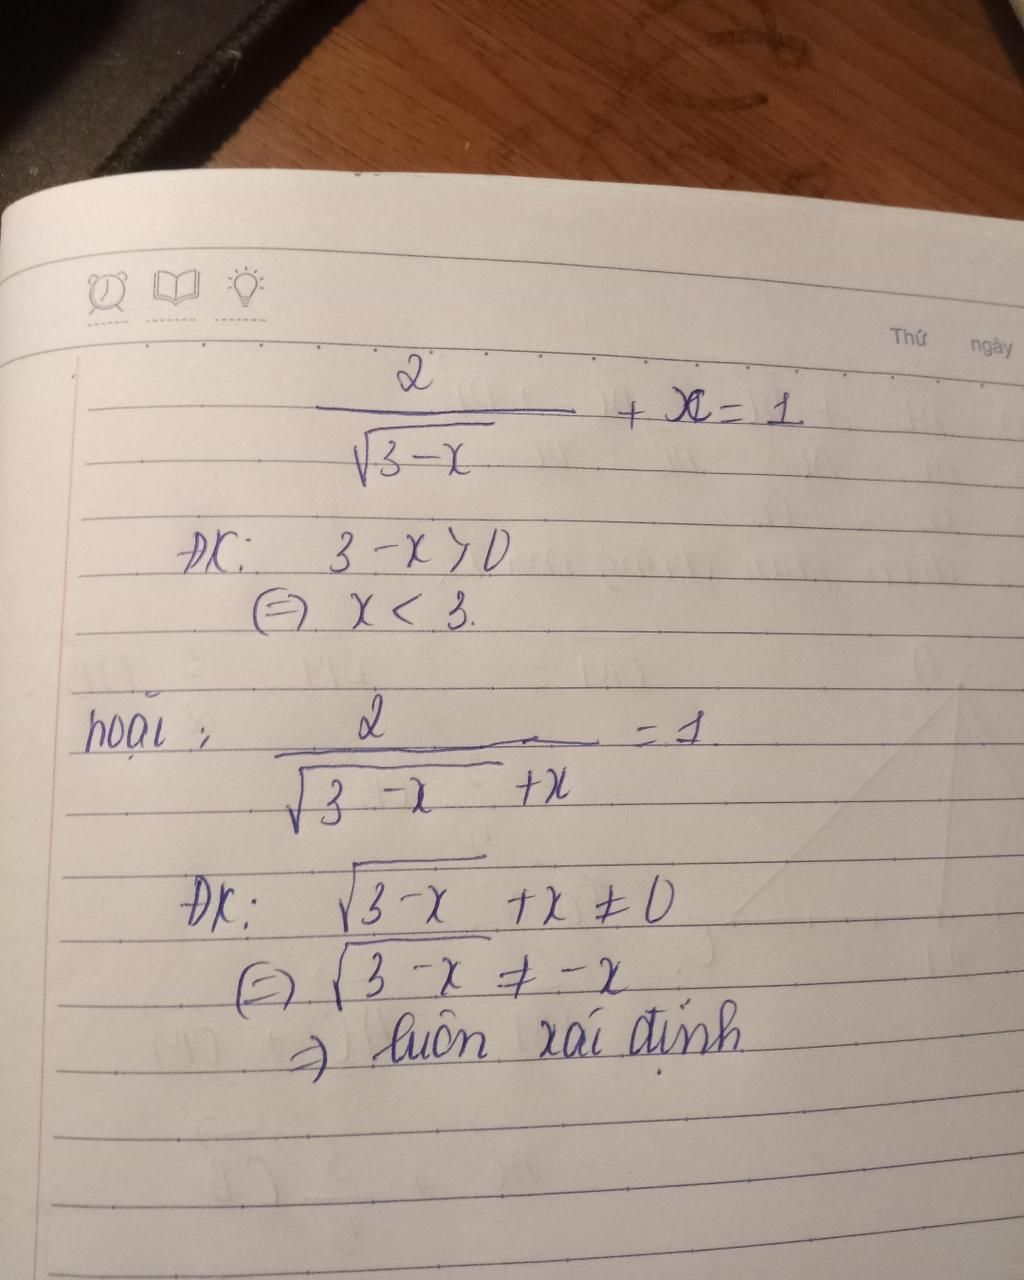 Thứ ngày
2/√(3-x) + x = 1
ĐK: 3 - x > 0
(=) x < 3.
hoặc: 2/(√(3-x) + x) = 1
ĐK: √(3-x) + x ≠ 0
(=) √(3-x) ≠ -x
=> luôn xái định